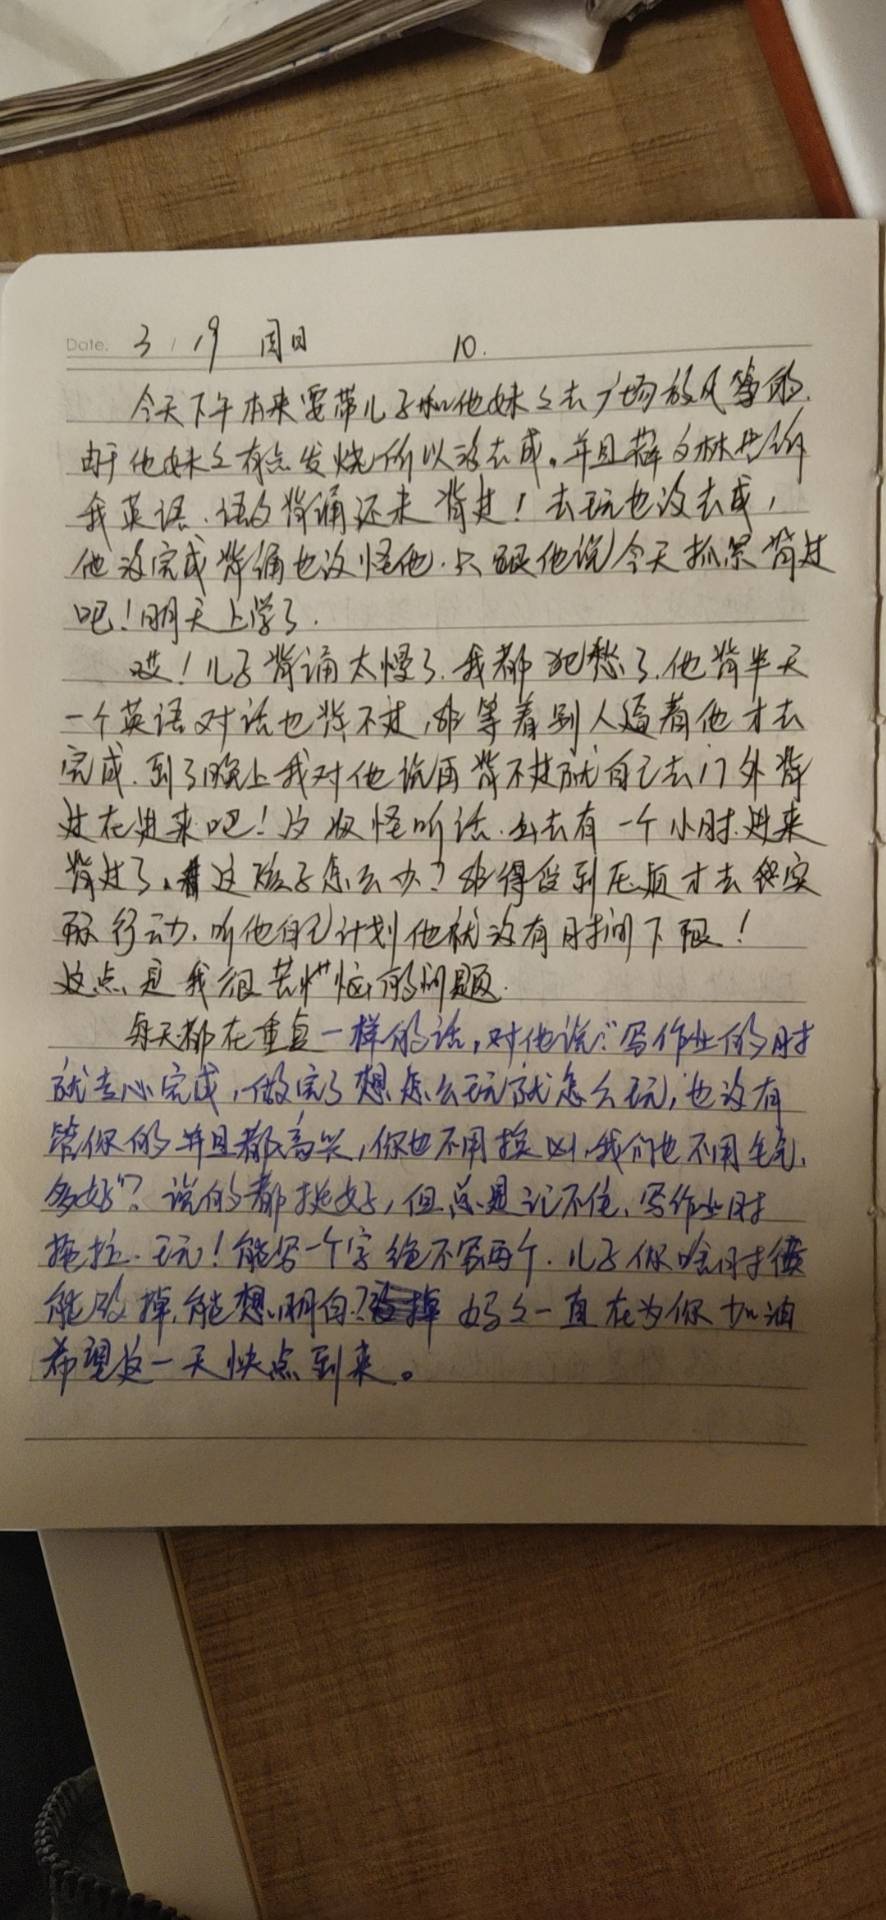 Date. 3 / 19 周日 10.
今天下午本来要带儿子和他妹々去广场放风筝的.
由于他妹々有点发烧所以没去成。并且薛文林告诉
我英语.语文背诵还未背过！去玩也没去成，
他没完成背诵也没怪他.只跟他说今天抓紧背过
吧！明天上学了.
哎！儿子背诵太慢了.我都犯愁了.他背半天
一个英语对话也背不过,非等着别人逼着他才去
完成.到了晚上我对他说再背不过就自己去门外背
过在进来吧！乖听话.出去有一个小时.进来
背过了.这孩子怎么办？非得受到压迫才去实
际行动.听他自己计划他就没有时间下限！
这点是我很苦恼的问题.
每天都在重复一样的话,对他说:"写作业的时
就专心完成,做完了想怎么玩就怎么玩,也没有
管你的并且都高兴,你也不用挨凶.我们也不用生气.
多好"？说的都挺好,但总是记不住.写作业时
拖拉.玩！能写一个字绝不写两个.儿子你啥时候
能改掉.能想明白？妈々一直在为你加油
希望这一天快点到来。